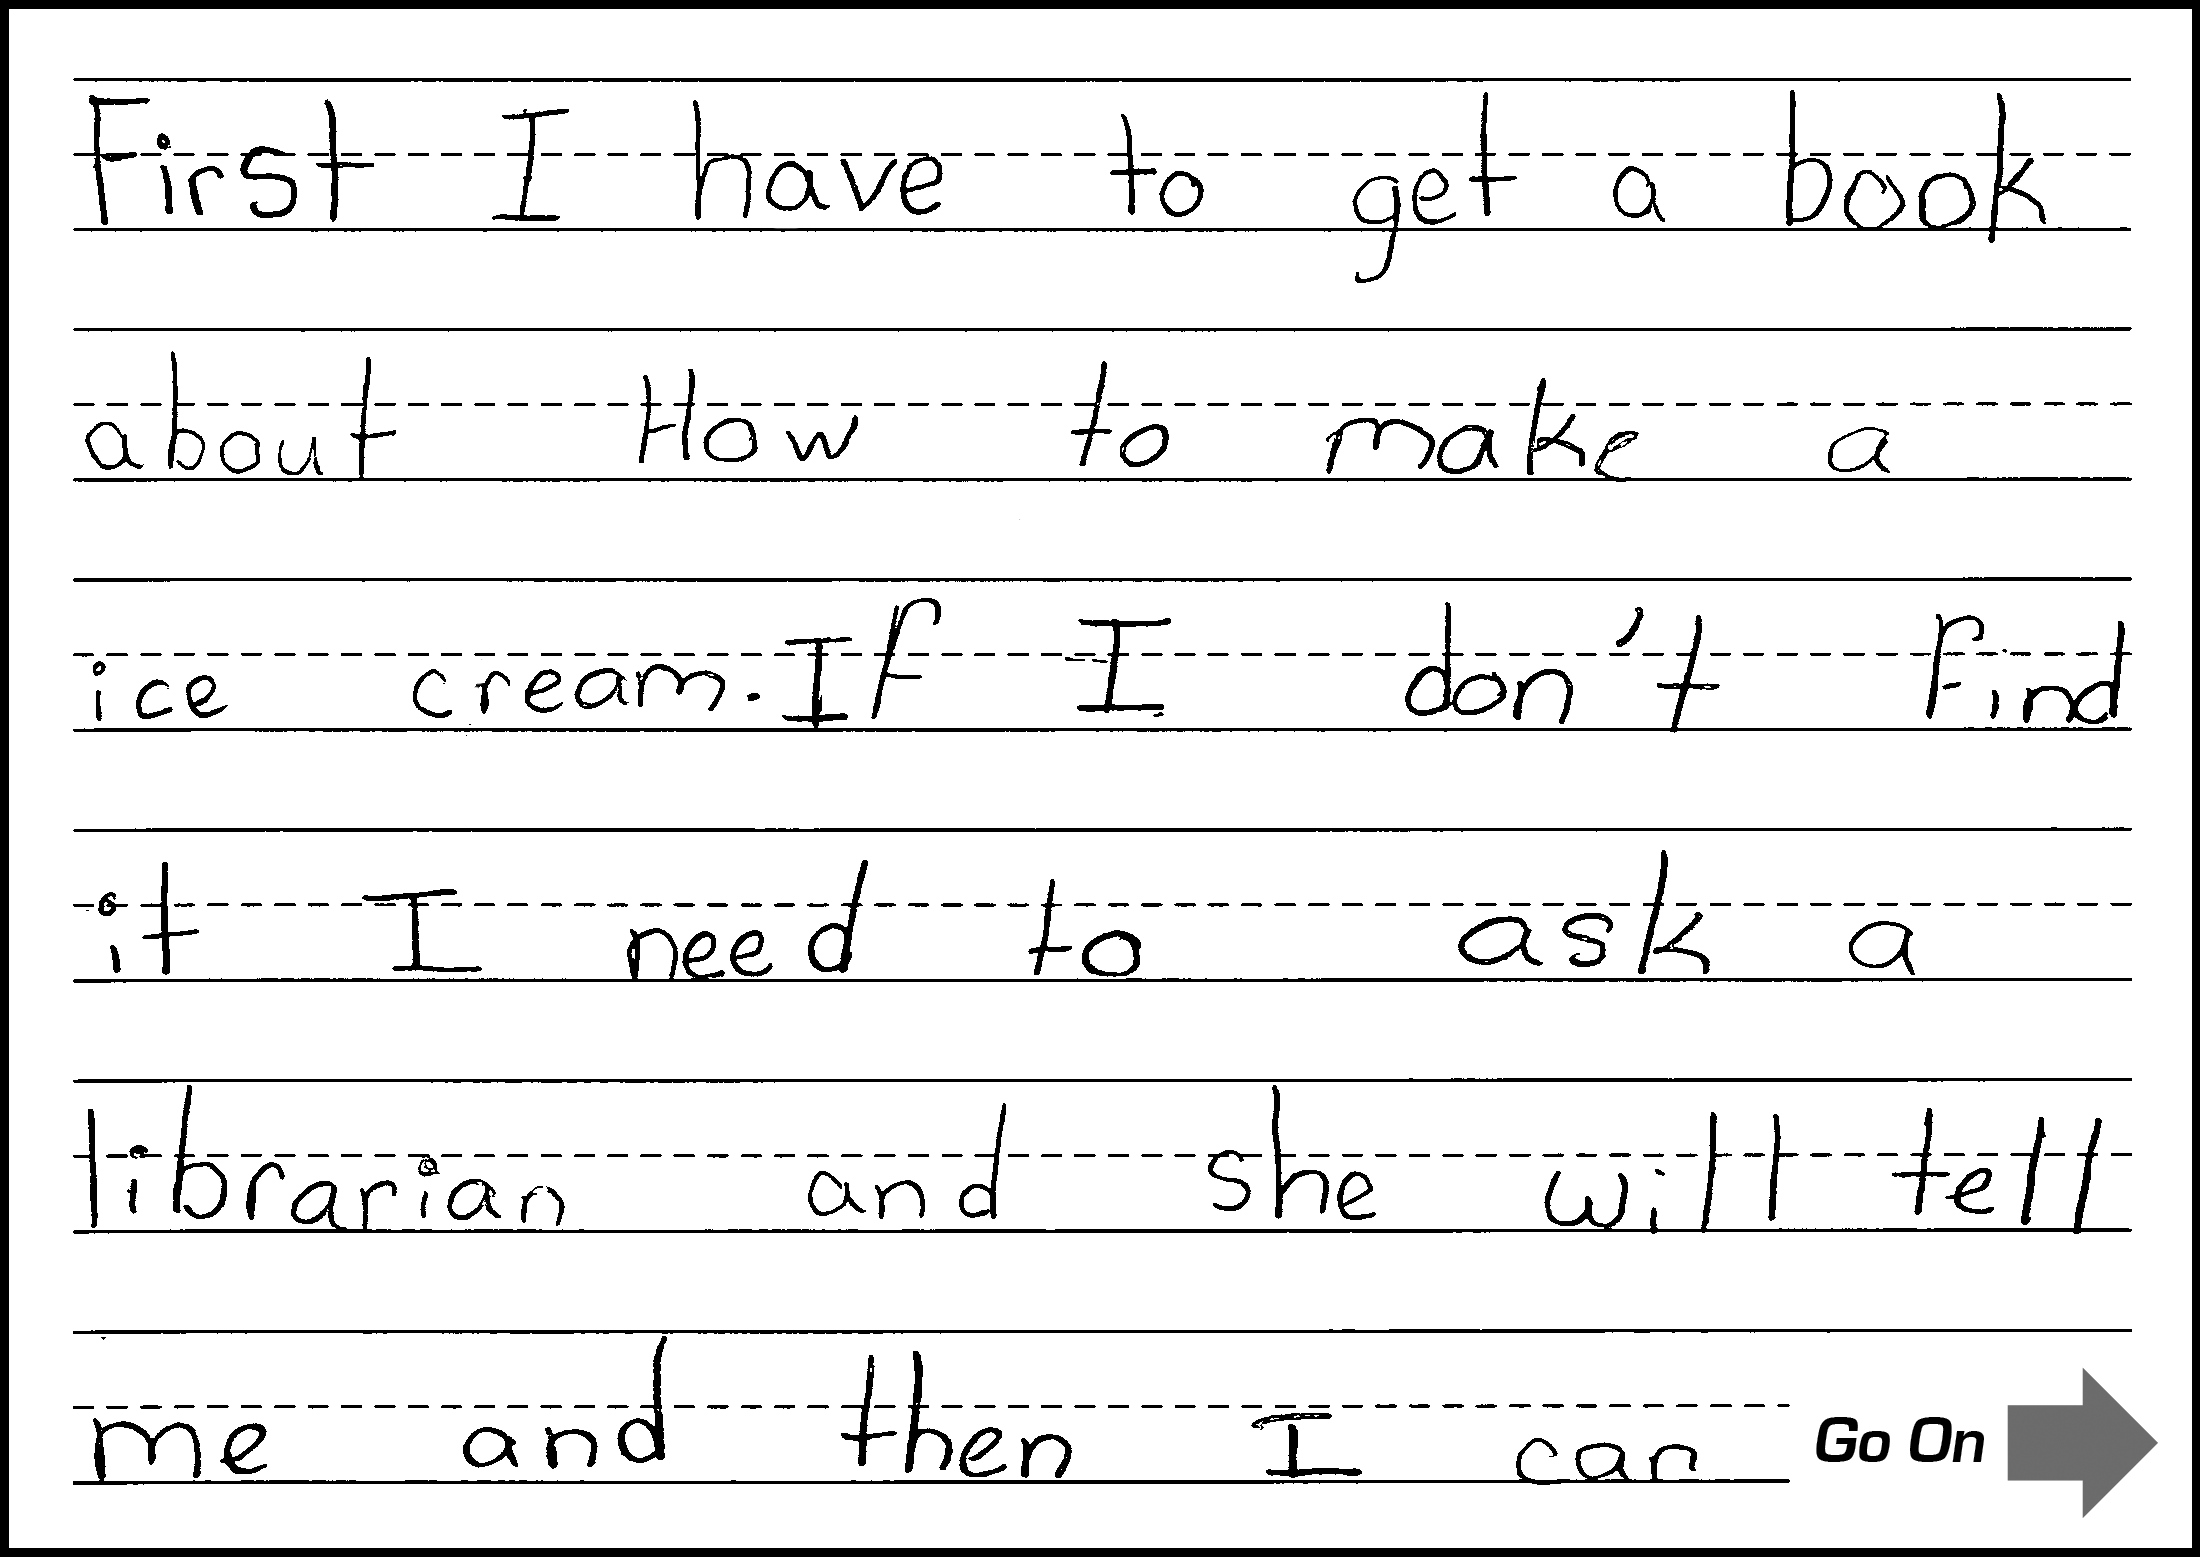 First I have to get a book
about How to make a
ice cream. If I don't find
it I need to ask a
librarian and she will tell
me and then I can
Go On